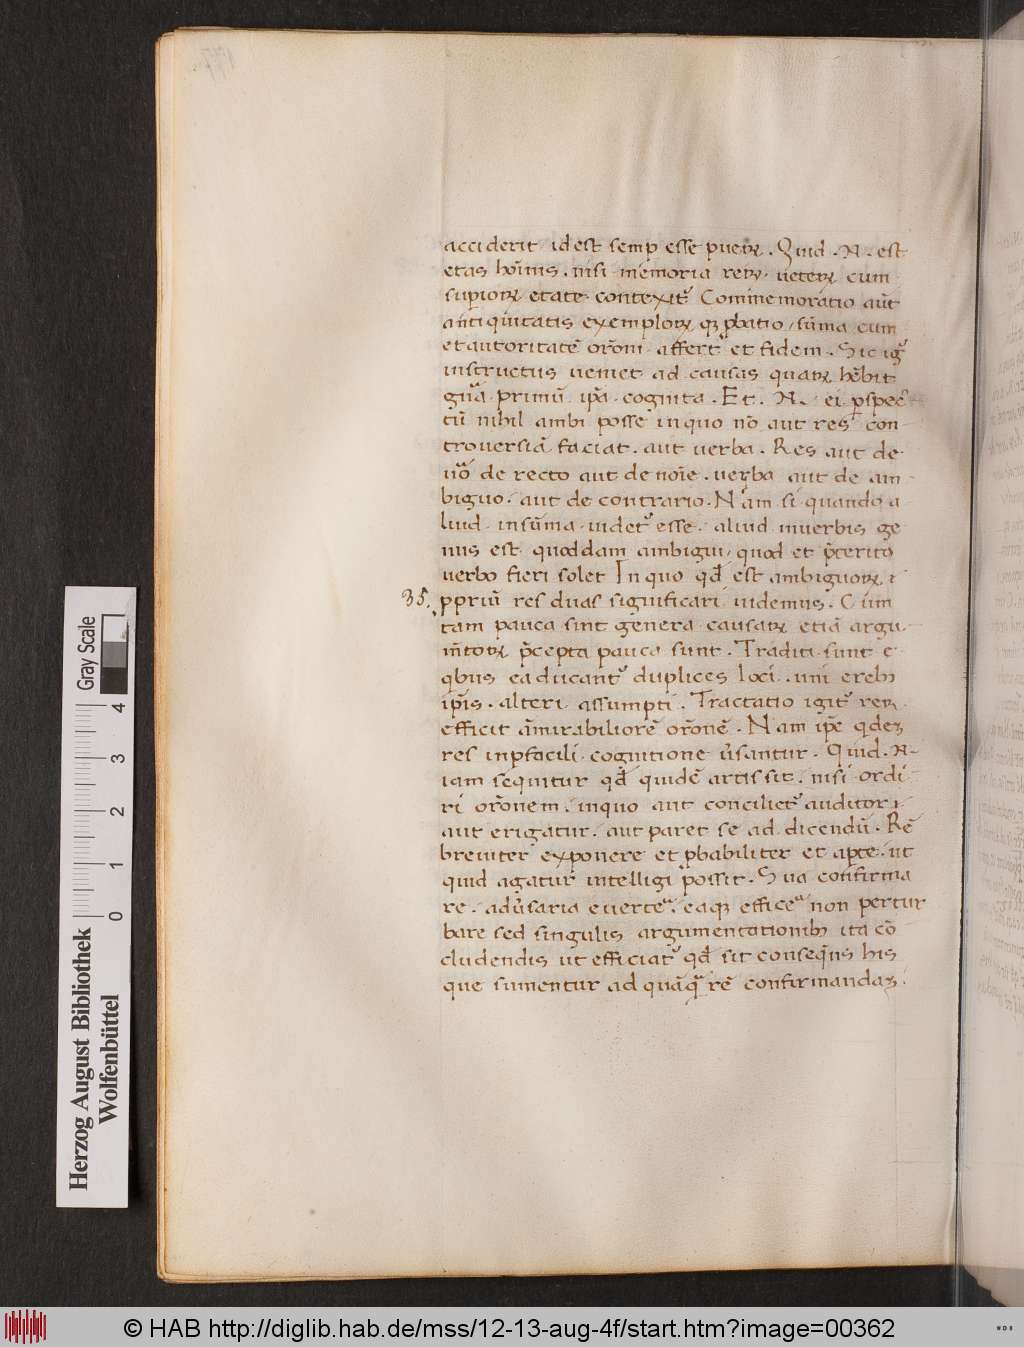 acciderit. idest semp esse pueꝝ. Quid. N. est
etas hoīnis. nisi memoria reꝝ. ueteꝝ cum
superioꝝ etate contexit᷑ Commemoratio aūt
antiquitatis exemploꝝ qꝫ ꝓbatio / sūma cum
et autoritatē or̄oni affert᷑ et fidem. Sic ig̃
instructus ueniet ad causas quaꝝ hēbit
gn̄a primū ip̄a cognita. Et. N. ei ꝑspec
tū nihil ambi posse in quo nō aut res con
trouersiā faciat. aut uerba. Res aut de
uo᷑ de recto aut de noīe. uerba aut de am
biguo. aut de contrario. Nam si quando a
liud. in sūma uidet᷑ esse. aliud inuerbis ge
nus est quoddam ambigui, quod et p̄terito
uerbo fieri solet In quo qd̄ est ambiguoꝝ ꝛ
35. ꝓpriū res duas significari uidemus. Cum
tam pauca sint genera causaꝝ etiā argu
m̄toꝝ p̄cepta pauca sunt. Traditi sunt e
qbus ea ducant᷑ duplices loci. uni e reb᷒
ip̄is. alteri assumpti. Tractatio igit᷑ reꝝ
efficit āmirabiliorē or̄onē. Nam ip̄e qdeꝫ
res inpfacili cognitione ūsantur. Quid. N.
iam sequitur qd̄ quidē artis sit. nisi ordi
ri or̄onem. inquo aut conciliet᷑ auditor ꝛ
aut erigatur. aut paret se ad dicendū. Rē
breuiter exponere et ꝓbabiliter et apte. ut
quid agatur intelligi possit. Sua confirma
re. adūsaria euerte᷑. eaqꝫ effice᷑ non pertur
bare sed singulis argumentationib᷒ ita cō
cludendis ut efficiat᷑ qd̄ sit conseqn̄s his
que sumentur ad quāq̃ rē confirmandaꝫ.
Gray Scale
0 1 2 3 4
Herzog August Bibliothek
Wolfenbüttel
© HAB http://diglib.hab.de/mss/12-13-aug-4f/start.htm?image=00362